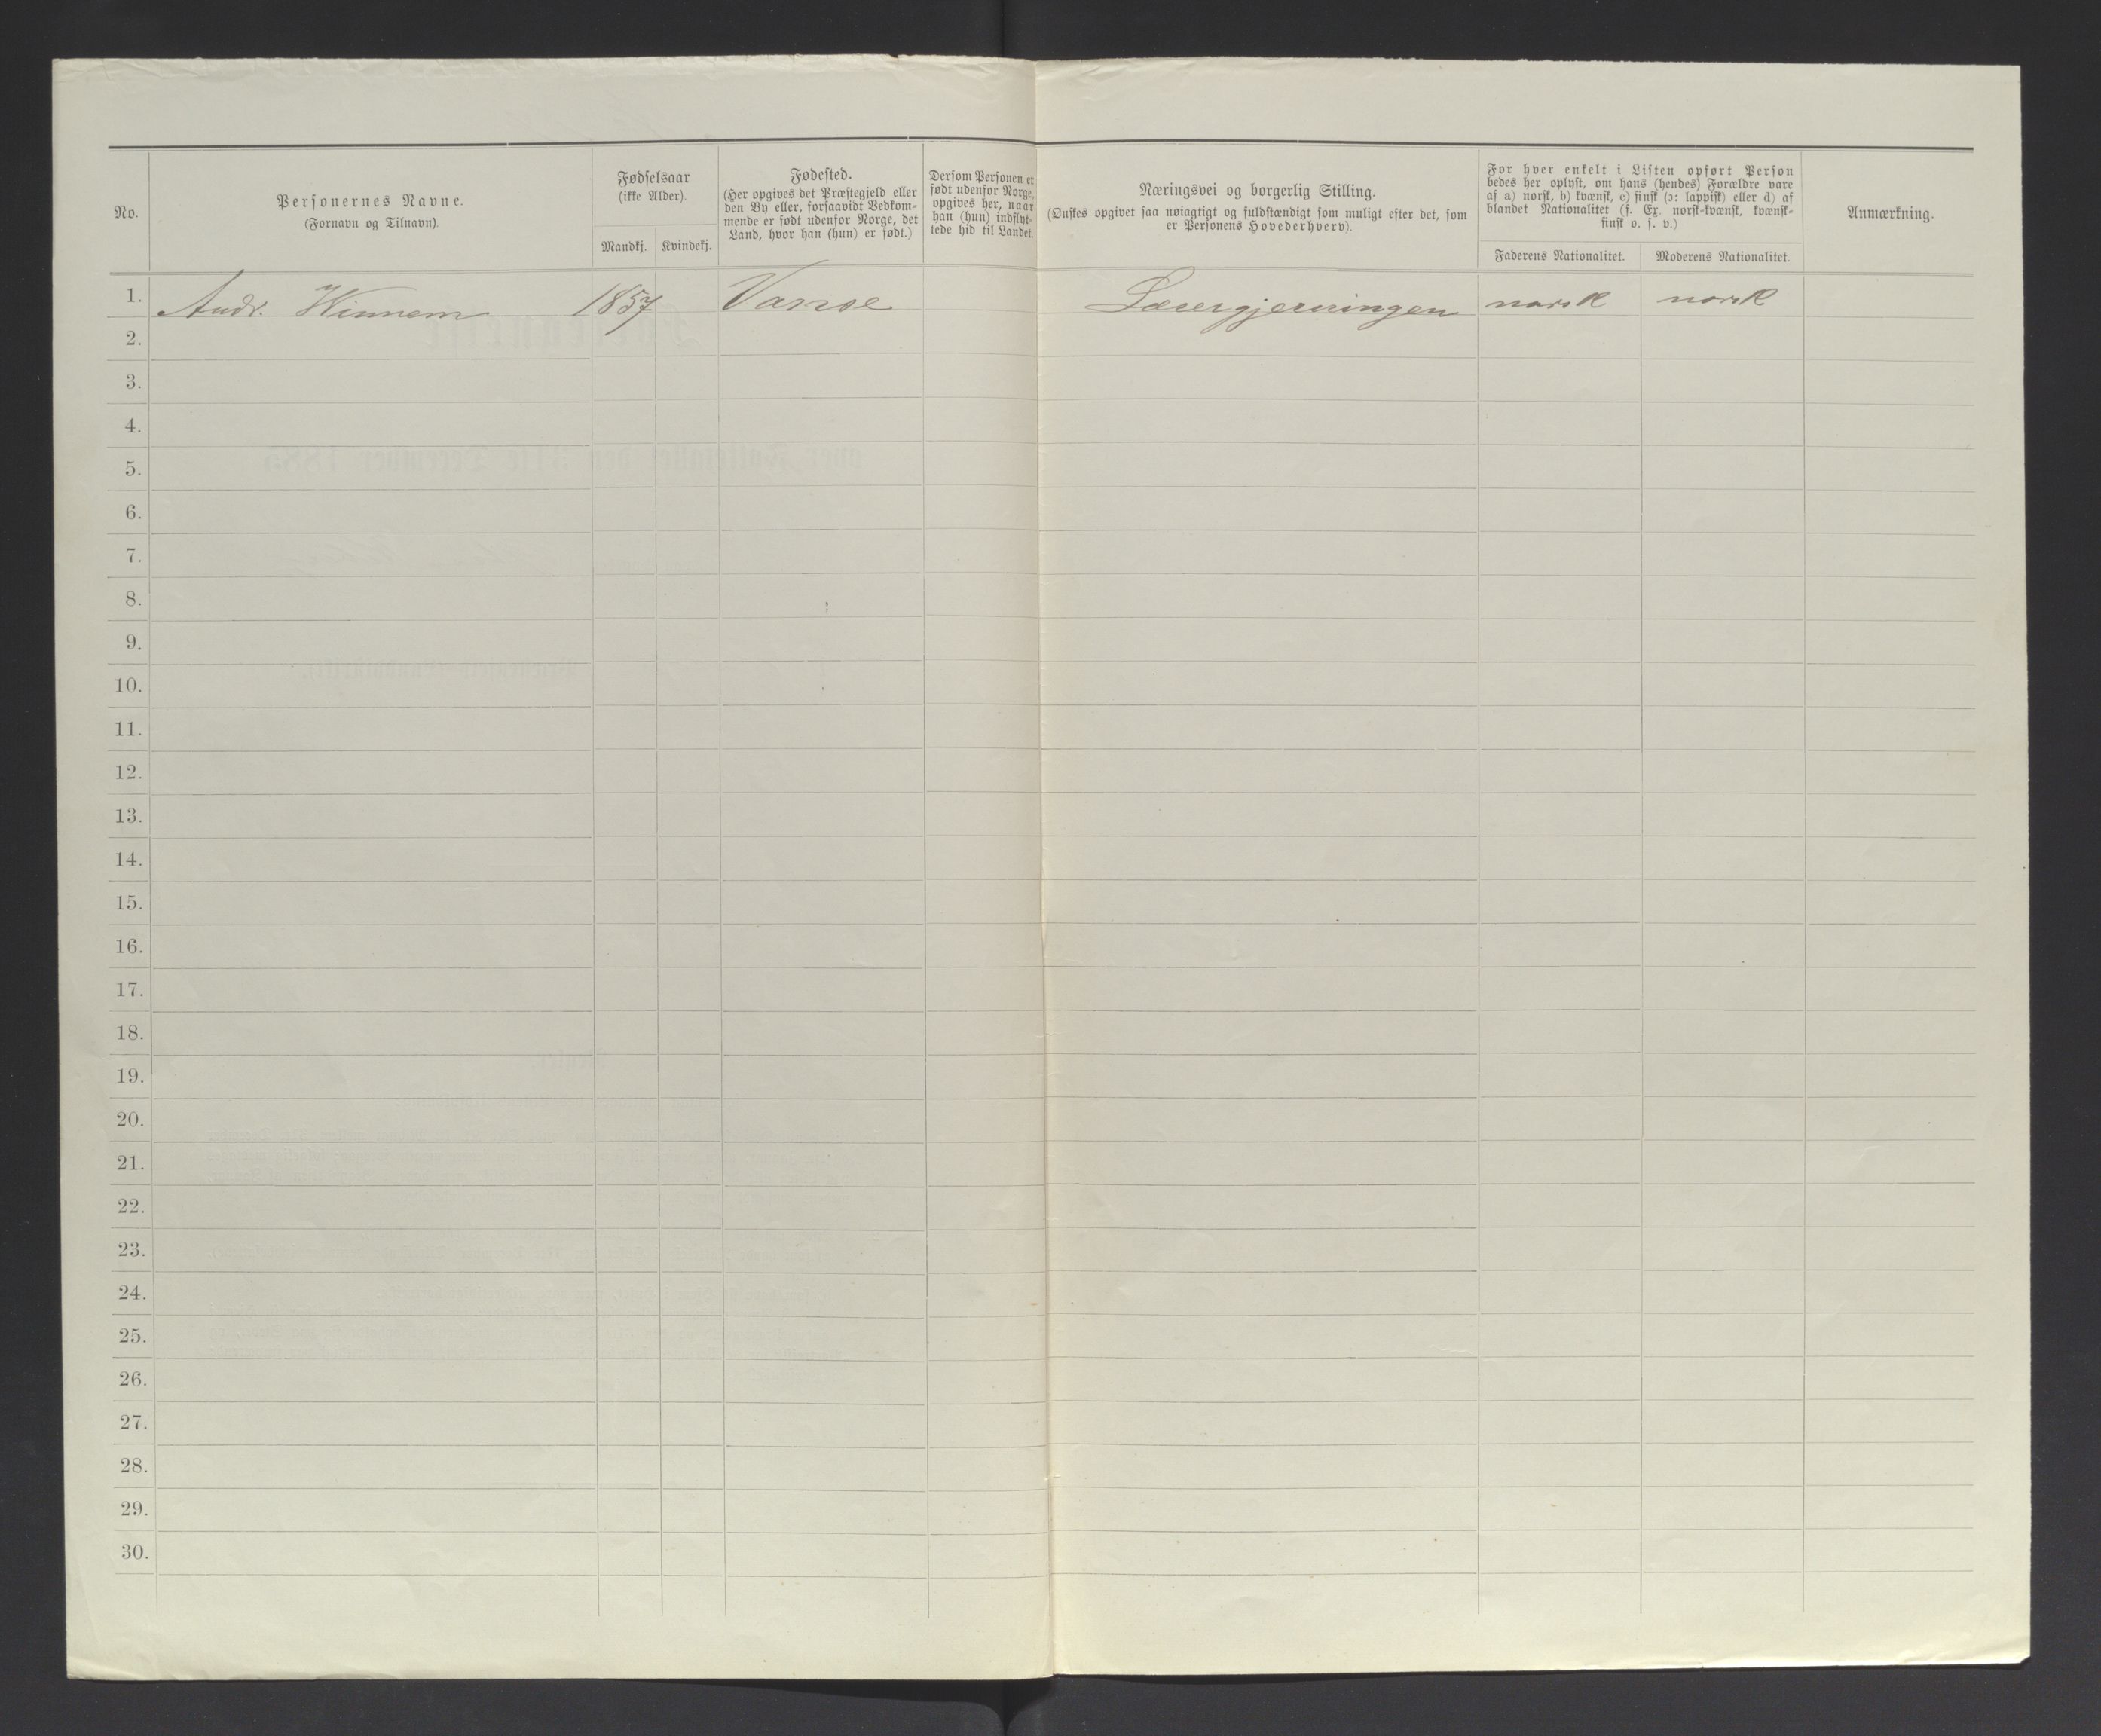 No.
Personernes Navne.
(Fornavn og Tilnavn).
Fødselsaar
(ikke Alder).
Mandkj. Kvindekj.
Fødested.
(Her opgives det Præstegjeld eller
den By eller, forsaavidt Vedkom-
mende er født udenfor Norge, det
Land, hvor han (hun) er født.)
Dersom Personen er
født udenfor Norge,
opgives her, naar
han (hun) indflyt-
tede hid til Landet.
Næringsvei og borgerlig Stilling.
(Ønskes opgivet saa nøiagtigt og fuldstændigt som muligt efter det, som
er Personens Hovederhverv).
For hver enkelt i Listen opført Person
bedes her oplyst, om hans (hendes) Forældre vare
af a) norsk, b) kvænsk, c) finsk (ɔ: lappisk) eller d) af
blandet Nationalitet (f. Ex. norsk-kvænsk, kvænsk-
finsk o. s. v.)
Faderens Nationalitet. Moderens Nationalitet.
Anmærkning.
1. Andr. Winnem 1857 Vanse Lærergjerningen norsk norsk
2.
3.
4.
5.
6.
7.
8.
9.
10.
11.
12.
13.
14.
15.
16.
17.
18.
19.
20.
21.
22.
23.
24.
25.
26.
27.
28.
29.
30.